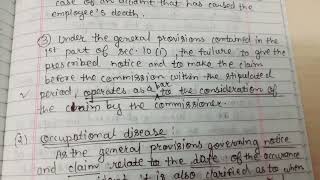 case of an accident that has caused the
employee's death.
(3) Under the general provisions contained in the
1st part of sec. 10(1), the failure to give the
prescribed notice and to make the claim
before the commission within the stipulated
✓ period, operates as a bar to the consideration of
the claim by the commissioner.
(2) Occupational disease:
As the general provisions governing notice
and claim relate to the date of the occurance
it is also clarified as to when